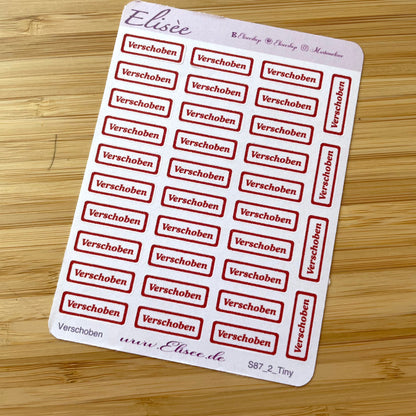 Elisèe
Verschoben Verschoben Verschoben
Verschoben Verschoben Verschoben
Verschoben
Verschoben Verschoben Verschoben
Verschoben Verschoben Verschoben
Verschoben
Verschoben Verschoben Verschoben
Verschoben Verschoben Verschoben
Verschoben
Verschoben Verschoben Verschoben
Verschoben Verschoben Verschoben
Verschoben
Verschoben Verschoben Verschoben
Verschoben Verschoben Verschoben
Verschoben
www.Elisee.de
S87_2_Tiny